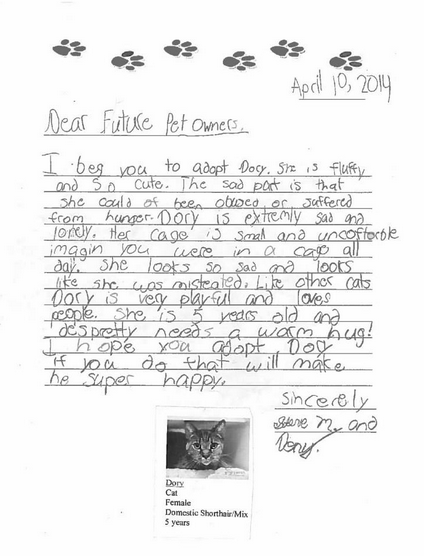 April 10, 2014
Dear Future Pet Owners,
I beg you to adopt Dory. She is fluffy
and so cute. The sad part is that
she could of been abused or suffered
from hunger. Dory is extremly sad and
lonely. Her cage is small and uncoftorble
imagin you were in a cage all
day. She looks so sad and looks
like she was misteated. Like other cats
Dory is very playful and loves
people. She is 5 years old and
despretty needs a warm hug!
I hope you adopt Dory
if you do that will make
he super happy.
Sincerely
M. and
Dory.
Dory
Cat
Female
Domestic Shorthair/Mix
5 years